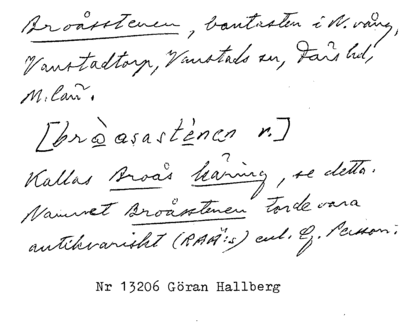 Broåsstenen, bautasten i N. vång,
Vanstadtorp, Vanstads sn, Färs hd,
M. län.
[bròasastènen n.]
Kallas Broås käring, se detta.
Namnet Broåsstenen torde vara
antikvariskt (RAÄ:s) enl. G. Persson.
Nr 13206 Göran Hallberg